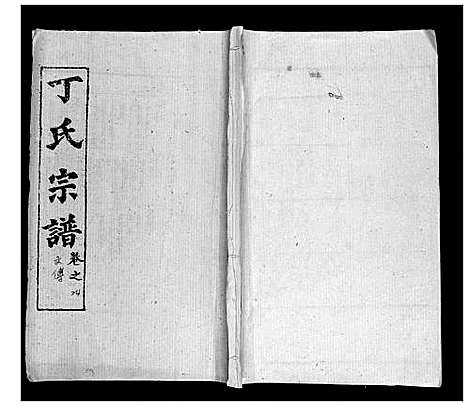 丁氏宗譜
卷之
文傳